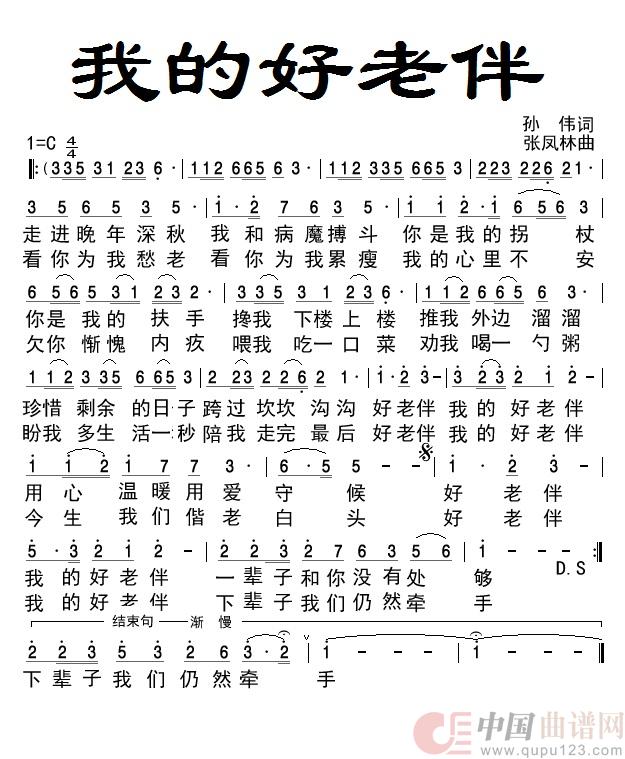 我的好老伴
孙 伟词
1=C 4/4 张凤林曲
‖:(335 31 23 6· | 112 665 63· | 112 335 665 63· | 223 226 21·
3 5 6 5 3 5· | 1·2 7 6 3 5· | 1 1·2 1 (656) 3 |
走进晚年深秋 我和病魔搏斗 你是我的拐 杖
看你为我愁老 看你为我累瘦 我的心里不 安
6 5 65 31 2 32· | 665 3 23 1 2· | 112 6 65 6 5· |
你是 我的 扶手 搀我 下楼上楼 推我外边 溜溜
欠你 惭愧 内疚 喂我 吃一口菜 劝我喝一 勺粥
112 335 6 653· | 223 226 2 1· | 1 2 3 23 2 1 2 - |
珍惜 剩余 的日子跨过 坎坎 沟沟 好老伴 我的 好老伴
盼我 多生 活一秒陪我 走完 最后 好老伴 我的 好老伴
1 1 12 7 7 7 3· | 6·5 5 - - | 1· 2 3 - |
用心 温暖用爱 守 候 好 老伴
今生 我们偕老 白 头 好 老伴
5·3 2 1 2 - | 2 2 3 2 7 6 3 56 | 1 - - :‖
D.S
我的好老伴 一辈子和你没有处 够
我的好老伴 下辈子我们仍然牵 手
结束句 渐 慢
3 2 3 2 7 6 2 3·2 | 1 - - - | 1 - - - ‖
下辈子我们仍然牵 手
中国曲谱网
www.qupu123.com